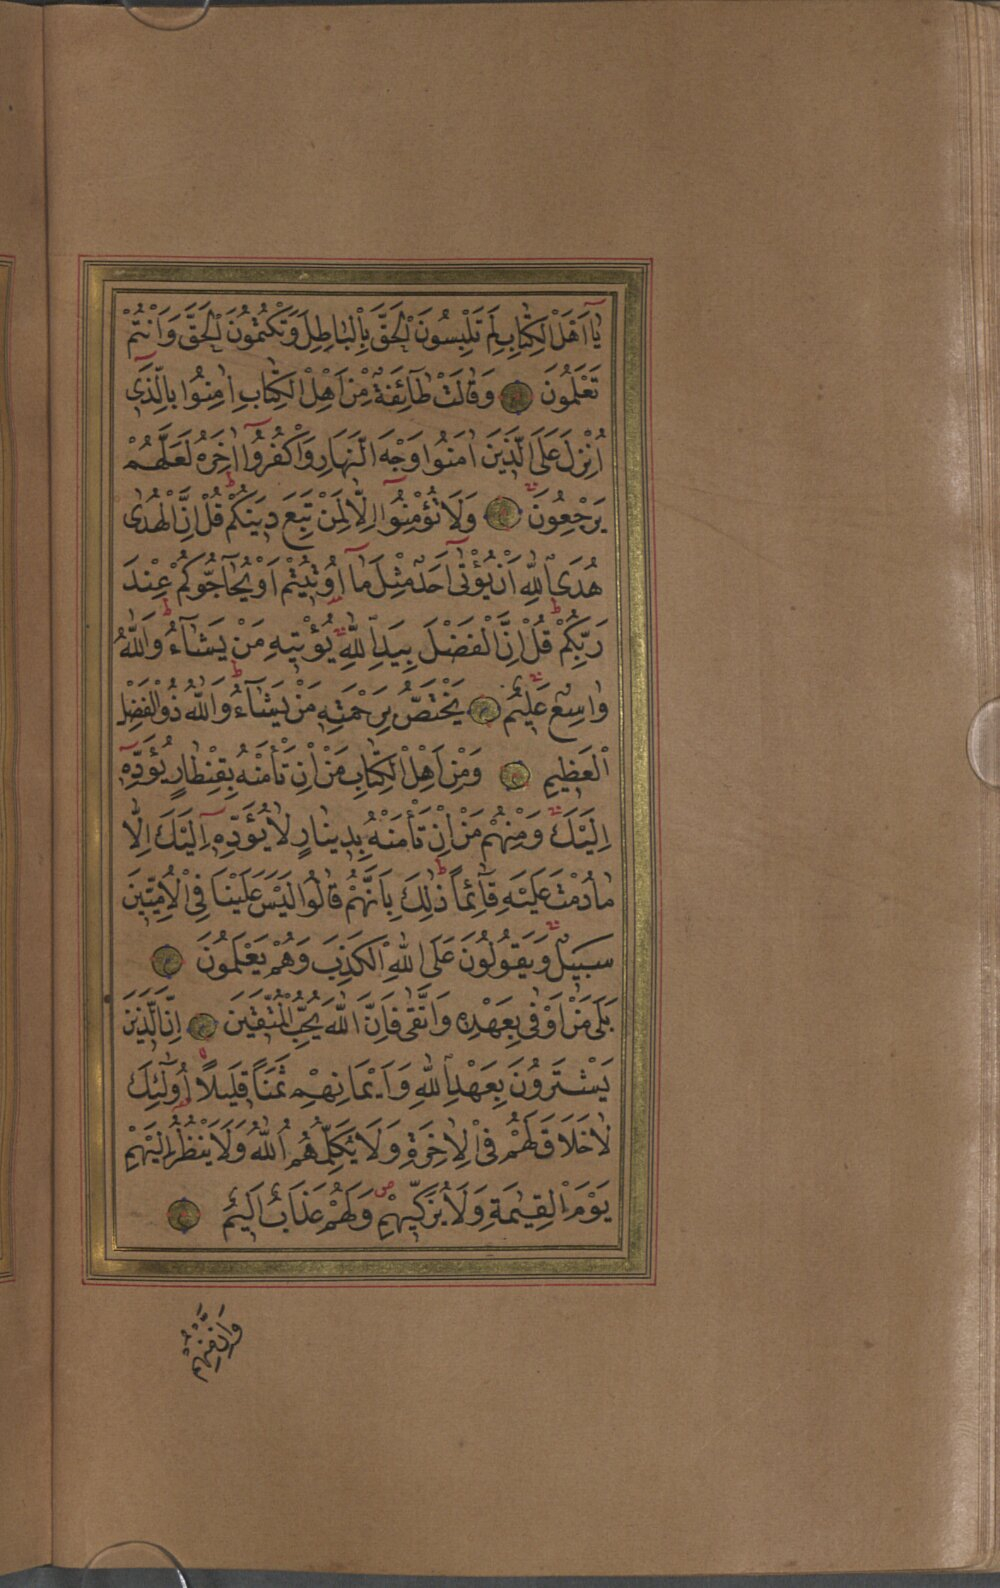 يَٓا اَهْلَ الْكِتَابِ لِمَ تَلْبِسُونَ الْحَقَّ بِالْبَاطِلِ وَتَكْتُمُونَ الْحَقَّ وَاَنْتُمْ
تَعْلَمُونَ وَقَالَتْ طَٓائِفَةٌ مِنْ اَهْلِ الْكِتَابِ اٰمِنُوا بِالَّذ۪ٓى
اُنْزِلَ عَلَى الَّذ۪ينَ اٰمَنُوا وَجْهَ النَّهَارِ وَاكْفُرُٓوا اٰخِرَهُ لَعَلَّهُمْ
يَرْجِعُونَ وَلَا تُؤْمِنُٓوا اِلَّا لِمَنْ تَبِعَ د۪ينَكُمْ قُلْ اِنَّ الْهُدٰى
هُدَى اللّٰهِ اَنْ يُؤْتٰٓى اَحَدٌ مِثْلَ مَٓا اُو۫ت۪يتُمْ اَوْ يُحَٓاجُّوكُمْ عِنْدَ
رَبِّكُمْ قُلْ اِنَّ الْفَضْلَ بِيَدِ اللّٰهِ يُؤْت۪يهِ مَنْ يَشَٓاءُ وَاللّٰهُ
وَاسِعٌ عَل۪يمٌ يَخْتَصُّ بِرَحْمَتِه۪ مَنْ يَشَٓاءُ وَاللّٰهُ ذُو الْفَضْلِ
الْعَظ۪يمِ وَمِنْ اَهْلِ الْكِتَابِ مَنْ اِنْ تَأْمَنْهُ بِقِنْطَارٍ يُؤَدِّه۪ٓ
اِلَيْكَ وَمِنْهُمْ مَنْ اِنْ تَأْمَنْهُ بِد۪ينَارٍ لَا يُؤَدِّه۪ٓ اِلَيْكَ اِلَّا
مَا دُمْتَ عَلَيْهِ قَٓائِماً ذٰلِكَ بِاَنَّهُمْ قَالُوا لَيْسَ عَلَيْنَا فِى الْاُمِّيّ۪نَ
سَب۪يلٌ وَيَقُولُونَ عَلَى اللّٰهِ الْكَذِبَ وَهُمْ يَعْلَمُونَ
بَلٰى مَنْ اَوْفٰى بِعَهْدِه۪ وَاتَّقٰى فَاِنَّ اللّٰهَ يُحِبُّ الْمُتَّق۪ينَ اِنَّ الَّذ۪ينَ
يَشْتَرُونَ بِعَهْدِ اللّٰهِ وَاَيْمَانِهِمْ ثَمَناً قَل۪يلًا اُو۬لٰٓئِكَ
لَا خَلَاقَ لَهُمْ فِى الْاٰخِرَةِ وَلَا يُكَلِّمُهُمُ اللّٰهُ وَلَا يَنْظُرُ اِلَيْهِمْ
يَوْمَ الْقِيٰمَةِ وَلَا يُزَكّ۪يهِمْ وَلَهُمْ عَذَابٌ اَل۪يمٌ
وَاِنَّ مِنْهُمْ